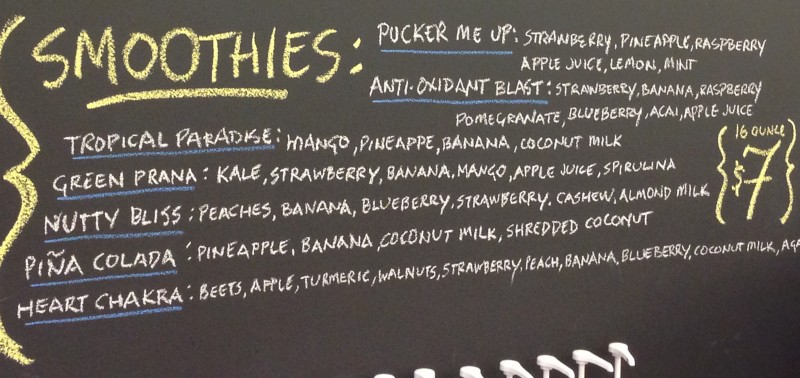 SMOOTHIES:
PUCKER ME UP: STRAWBERRY, PINEAPPLE, RASPBERRY
APPLE JUICE, LEMON, MINT
ANTI-OXIDANT BLAST: STRAWBERRY, BANANA, RASPBERRY
POMEGRANATE, BLUEBERRY, ACAI, APPLE JUICE
TROPICAL PARADISE: MANGO, PINEAPPE, BANANA, COCONUT MILK
GREEN PRANA: KALE, STRAWBERRY, BANANA, MANGO, APPLE JUICE, SPIRULINA
NUTTY BLISS: PEACHES, BANANA, BLUEBERRY, STRAWBERRY, CASHEW, ALMOND MILK
PIÑA COLADA: PINEAPPLE, BANANA, COCONUT MILK, SHREDDED COCONUT
HEART CHAKRA: BEETS, APPLE, TURMERIC, WALNUTS, STRAWBERRY, PEACH, BANANA, BLUEBERRY, COCONUT MILK,
16 OUNCE
$7